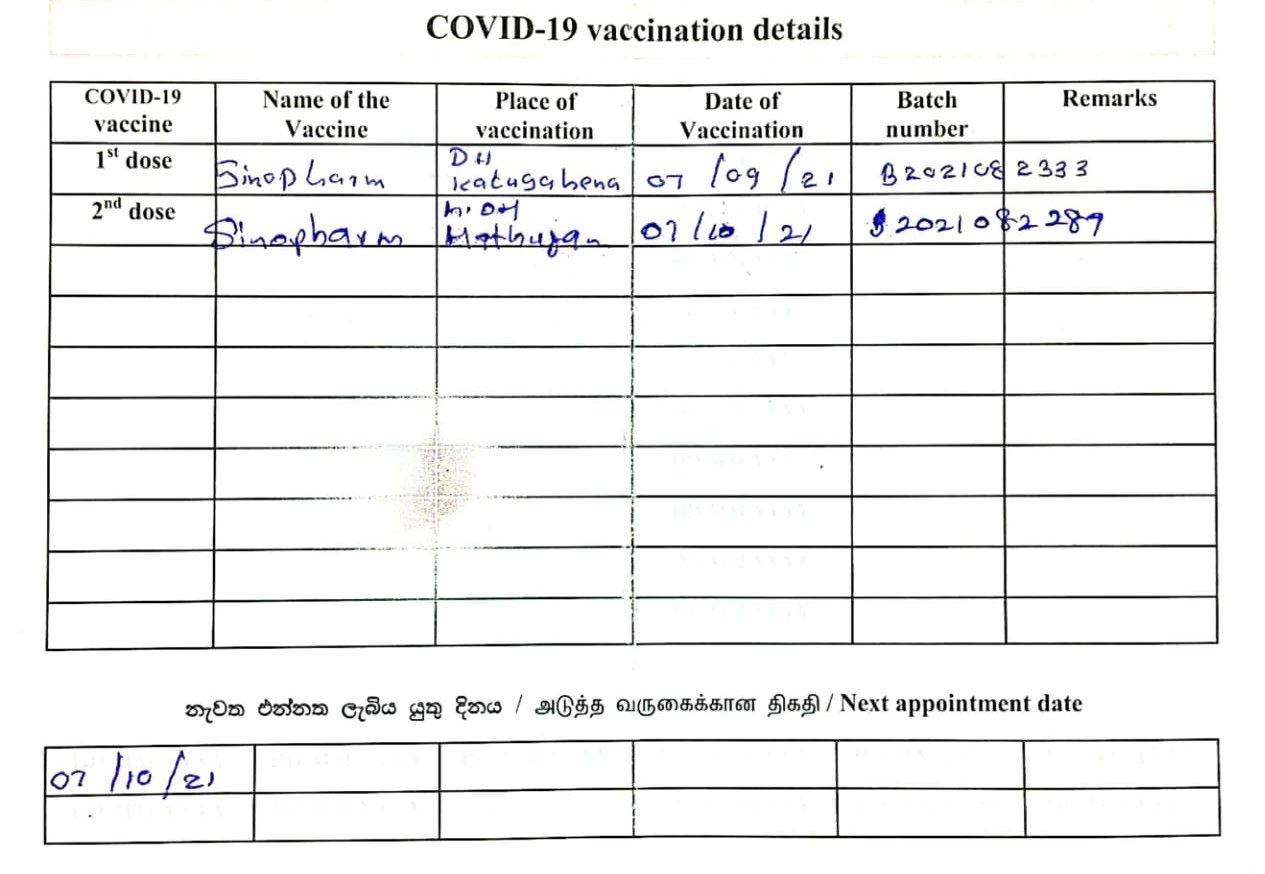 COVID-19 vaccination details
COVID-19 vaccine Name of the Vaccine Place of vaccination Date of Vaccination Batch number Remarks
1st dose Sinopharm DH Katugahena 07/09/21 B2021082333
2nd dose Sinopharm 07/10/21 2021082289
නැවත එන්නත ලැබිය යුතු දිනය / அடுத்த வருகைக்கான திகதி / Next appointment date
07/10/21